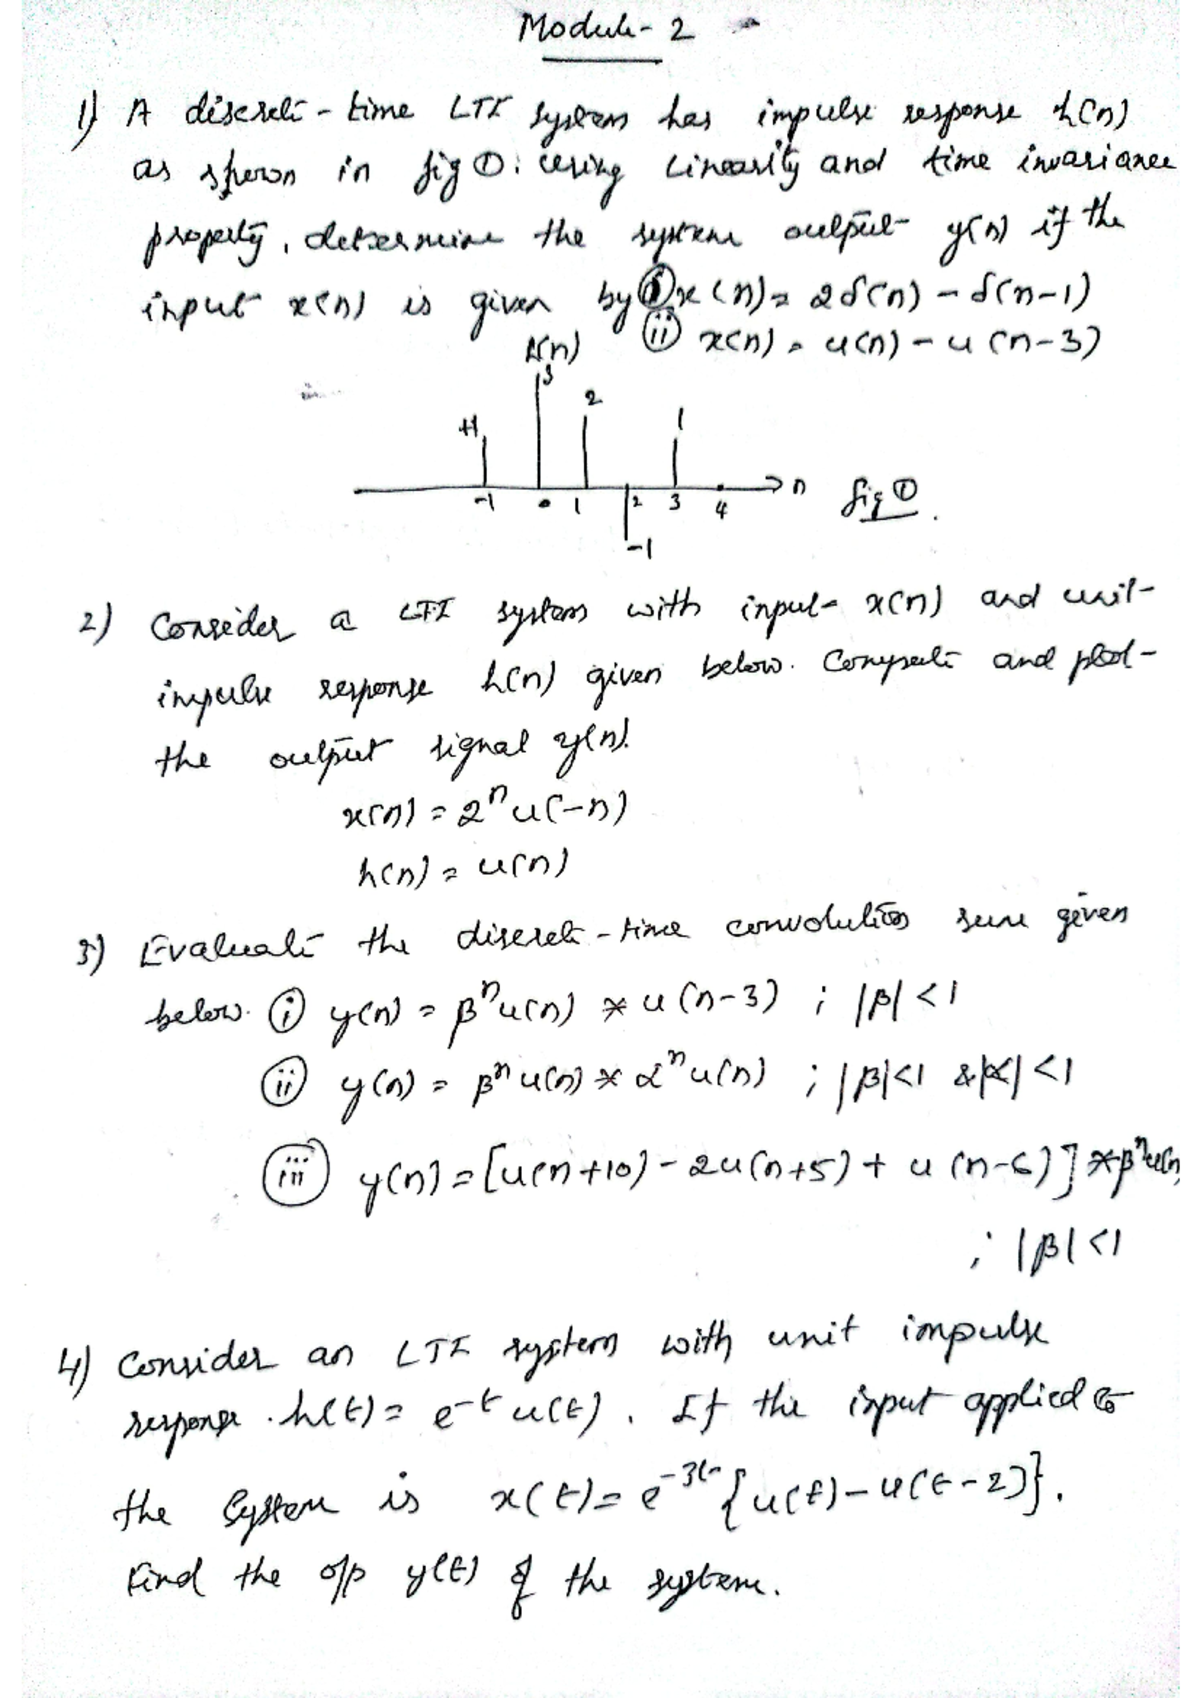 Module - 2
1) A discrete - time LTI system has impulse response h(n)
as shown in fig ①. using Linearity and time invariance
property, determine the system output y(n) if the
input x(n) is given by ① x(n) = 2δ(n) - δ(n-1)
ⅱ x(n) = u(n) - u(n-3)
h(n)
3
2
+1
1
-1 0 1 2 3 4 n fig ①.
-1
2) Consider a LTI system with input x(n) and unit-
impulse response h(n) given below. Compute and plot
the output signal y(n).
x(n) = 2ⁿ u(-n)
h(n) = u(n)
3) Evaluate the discrete - time convolution sum given
below. ⓘ y(n) = βⁿu(n) * u(n-3) ; |β| < 1
ⅱ y(n) = βⁿ u(n) * αⁿ u(n) ; |β|<1 & |α| <1
ⅲ y(n) = [u(n+10) - 2u(n+5) + u(n-6)] * βⁿu(n)
; |β| <1
4) Consider an LTI system with unit impulse
response h(t) = e^-t u(t). If the input applied to
the System is x(t) = e^-3t {u(t) - u(t-2)}.
Find the o/p y(t) of the system.